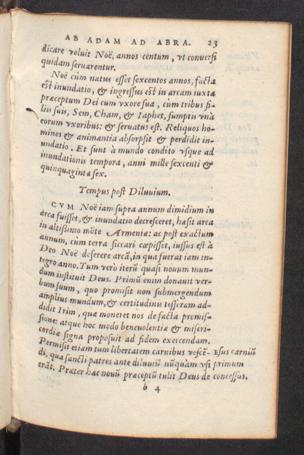 AB ADAM AD ABRA. 23
dicare voluit Noë, annos centum, vt conuersi
quidam seruarentur.
Noë cùm natus esset sexcentos annos, facta
est inundatio, & ingressus est in arcam iuxta
præceptum Dei cum vxore sua, cum tribus fi-
liis suis, Sem, Cham, & Iaphet, sumptis vnà
eorum vxoribus: & seruatus est. Reliquos ho-
mines & animantia absorpsit & perdidit in-
undatio. Et sunt à mundo condito vsque ad
inundationis tempora, anni mille sexcenti &
quinquaginta sex.
Tempus post Diluuium.
CVM Noë iam supra annum dimidium in
arca fuisset, & inundatio decresceret, hæsit arca
in altissimo mōte Armeniæ: ac post exactum
annum, cum terra siccari cœpisset, iussus est à
Deo Noë deserere arcā, in qua fuerat iam in-
tegro anno. Tum verò iterū quasi nouum mun-
dum instituit Deus. Primū enim donauit ver-
bum suum, quo promisit non submergendum
amplius mundum, & certitudinis tesseram ad-
didit Irim, quæ moneret nos de facta promis-
sione: atque hoc modo beneuolentiæ & miseri-
cordiæ signa proposuit ad fidem exercendam.
Permisit etiam tum libertatem carnibus vescē- Vsus carniū
di, qua sancti patres ante diluuiū nūquàm vsi primum
erāt. Præter hæc nouū præceptū tulit Deus de concessus.
b 4